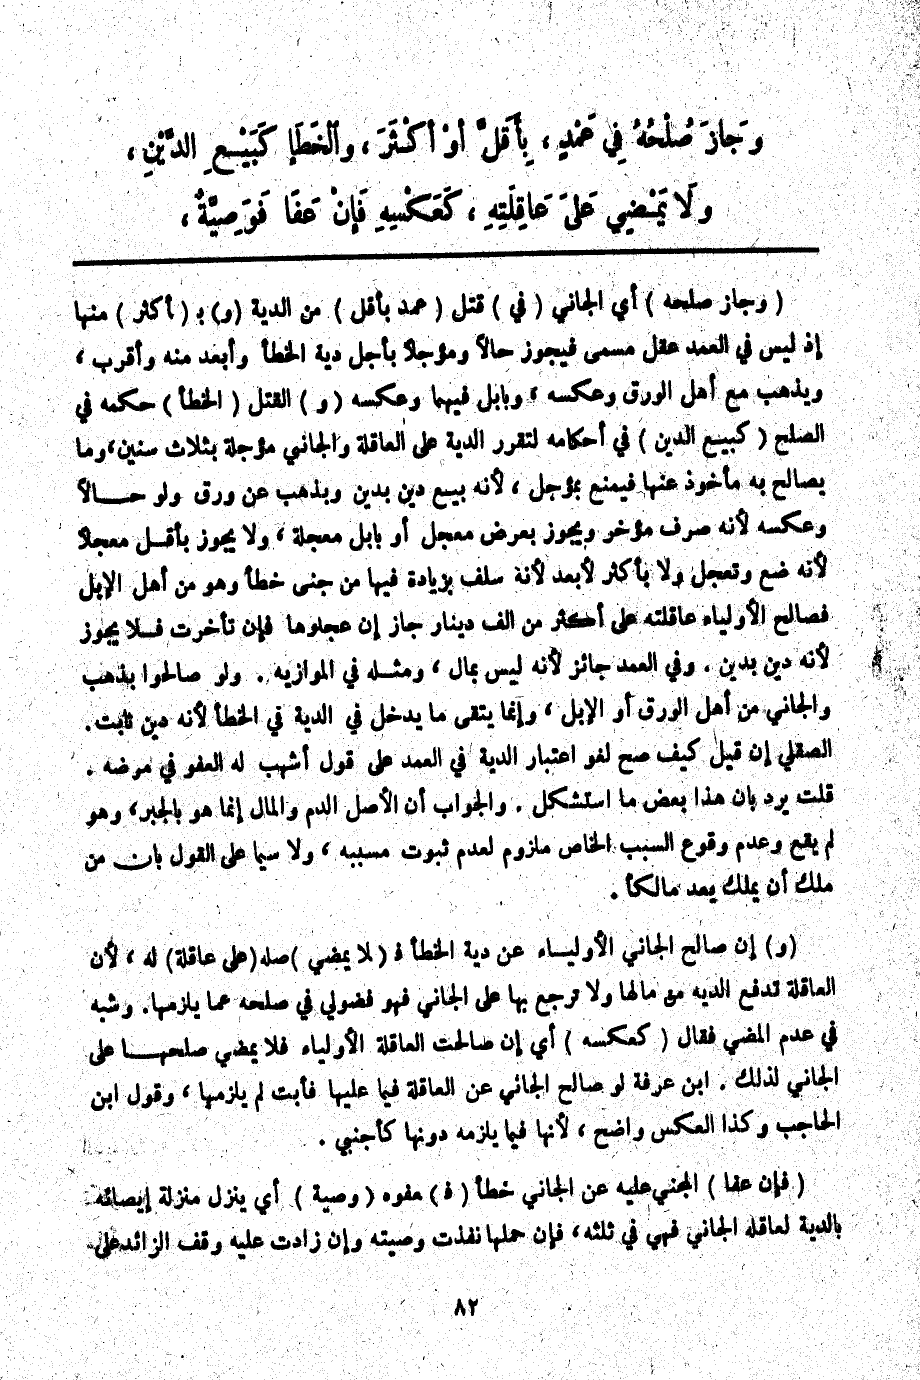 وَجَازَ صُلْحُهُ فِي عَمْدٍ ، بِأَقَلَّ أَوْ أَكْثَرَ ، وٱلْخَطَإِ كَبَيْعِ الدَّيْنِ ،
وَلَا يَمْضِي عَلَى عَاقِلَتِهِ ، كَعَكْسِهِ فَإِنْ عَفَا فَوَصِيَّةٌ ،
( وجاز صلحه ) أي الجاني ( في ) قتل ( عمد بأقل ) من الدية (و) بـ ( أكثر ) منها
إذ ليس في العمد عقل مسمى فيجوز حالاً ومؤجلاً بأجل دية الخطأ وأبعد منه وأقرب ،
وبذهب مع أهل الورق وعكسه ، وبابل فيهما وعكسه ( و ) القتل ( الخطأ ) حكمه في
الصلح ( كبيع الدين ) في أحكامه لتقرر الدية على العاقلة والجاني مؤجلة بثلاث سنين،وما
يصالح به مأخوذ عنها فيمنع بمؤجل ، لأنه بيع دين بدين وبذهب عن ورق ولو حـــالاً
وعكسه لأنه صرف مؤخر ويجوز بعرض معجل أو بابل معجلة ، ولا يجوز بأقـل معجلاً
لأنه ضع وتعجل ولا بأكثر لأبعد لأنة سلف بزيادة فيها من جنى خطأ وهو من أهل الإبل
فصالح الأولياء عاقلته على أكثر من الف دينار جاز إن عجلوها فإن تأخرت فـلا يجوز
لأنه دين بدين . وفي العمد جائز لأنه ليس بمال ، ومثـله في الموازيه . ولو صالحوا بذهب
والجاني من أهل الورق أو الإبل ، وإنما يتقى ما يدخل في الدية في الخطأ لأنه دين ثابت.
الصقلي إن قيل كيف صح لغو اعتبار الدية في العمد على قول أشهب له العفو في مرضه .
قلت يرد بان هذا بعض ما استشكل . والجواب أن الأصل الدم والمال إنما هو بالجبر، وهو
لم يقع وعدم وقوع السبب الخاص ملزوم لعدم ثبوت مسببه ، ولا سيما على القول بان من
ملك أن يملك يعد مالكاً .
(و) إن صالح الجاني الأوليـاء عن دية الخطأ فـ ( لا يمضي )صله(على عاقلة) له ، لأن
العاقلة تدفع الديه من مالها ولا ترجع بها على الجاني فهو فضولي في صلحه عما يلزمها. وشبه
في عدم المضي فقال ( كعكسه ) أي إن صالحت العاقلة الأولياء فلا يمضي صلحهــا على
الجاني لذلك . ابن عرفة لو صالح الجاني عن العاقلة فيما عليها فأبت لم يلزمها ، وقول ابن
الحاجب وكذا العكس واضح ، لأنها فيما يلزمه دونها كأجنبي .
( فإن عفا ) المجني عليه عن الجاني خطأ ( فـ ) عفوه ( وصية ) أي ينزل منزلة إيصائه
بالدية لعاقله الجاني فهي في ثلثه، فإن حملها نفذت وصيته وإن زادت عليه وقف الزائد على
٨٢